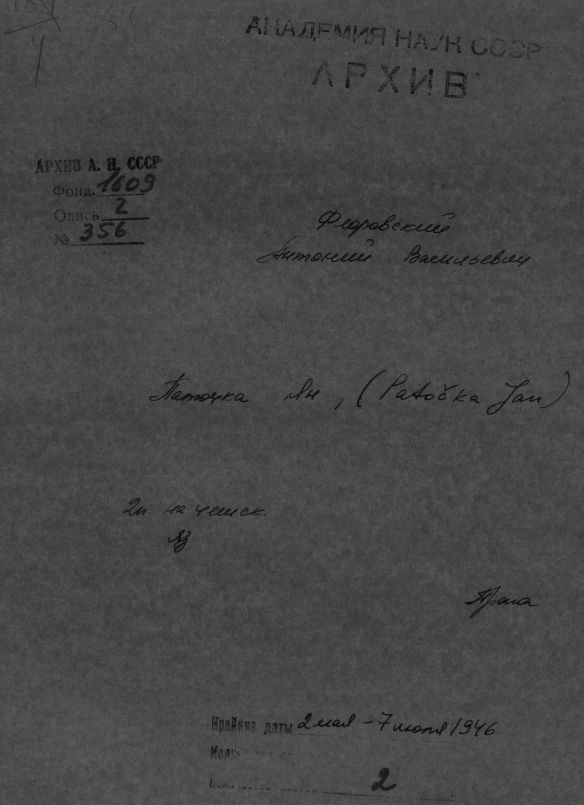 АКАДЕМИЯ НАУК СССР
АРХИВ
АРХИВ А. Н. СССР
Фонд. 1609
Опись 2
№ 356
Флоровский
Антоний Васильевич
Паточка Ян, (Patočka Jan)
2п на чешск.
яз
Прага
Крайние даты 2 мая – 7 июля 1946
2